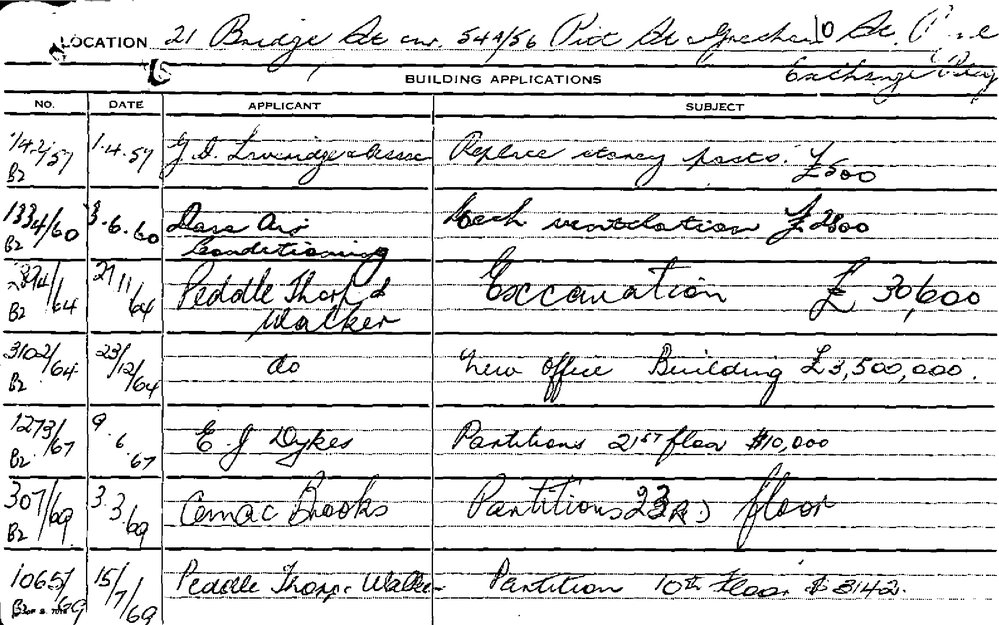 LOCATION 21 Bridge St cnr. 54A/56 Pitt St & Gresham St.
Exchange
BUILDING APPLICATIONS
NO. DATE APPLICANT SUBJECT
142/57 1.4.57 G. D. Replace storey posts. £500
B2
1334/60 3.6.60 Air Mech ventilation £2800
B2 Conditioning
/64 27/11/64 Peddle Thorp & Excavation £30,600
B2 Walker
3102/64 23/12/64 do New Office Building £3,500,000.
B2
1273/67 9.6.67 E J Dykes Partitions 21st floor $10,000
B2
307/69 3.3.69 Cemac Brooks Partitions 23RD floor
B2
1065/69 15/7/69 Peddle Thorp Walker Partition 10th floor $3142.
B2